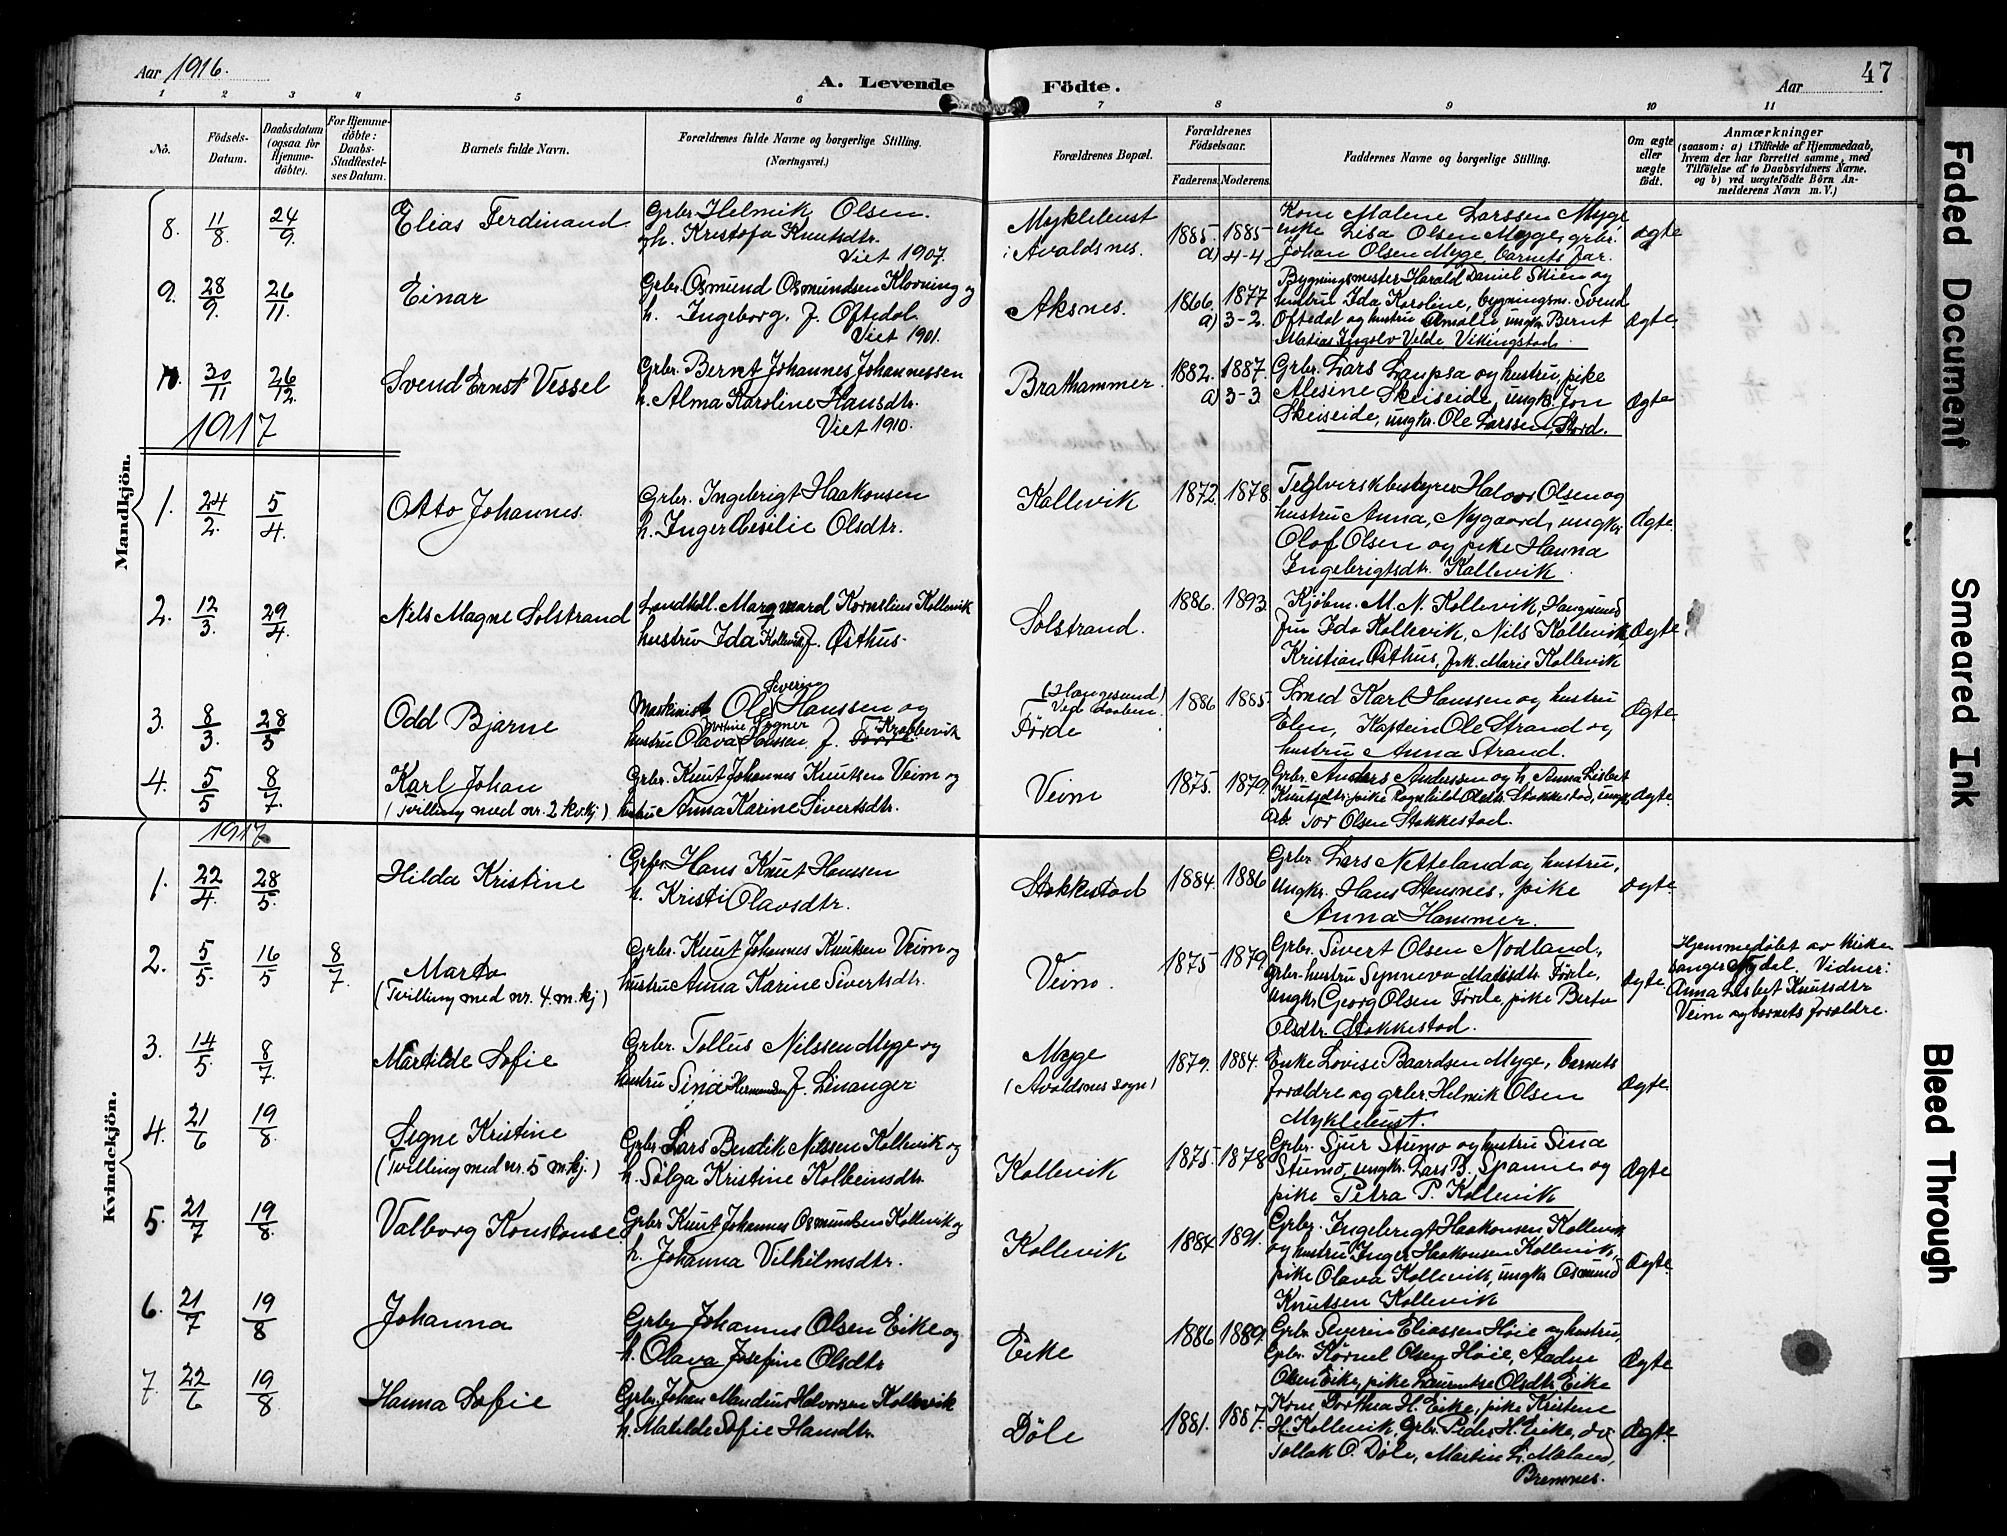 Aar 1916.
A. Levende Födte.
Aar
47
1 2 3 4 5 6 7 8 9 10 11
No.
Födsels-Datum.
Daabsdatum (ogsaa for Hjemme-döbte).
For Hjemme-döbte: Daabs-Stadfæstel-ses Datum.
Barnets fulde Navn.
Forældrenes fulde Navne og borgerlige Stilling. (Næringsvei.)
Forældrenes Bopæl.
Forældrenes Födselsaar.
Faderens. Moderens.
Faddernes Navne og borgerlige Stilling.
Om ægte eller uægte födt.
Anmærkninger
(saasom: a) i Tilfælde af Hjemmedaab, hvem der har forrettet samme, med Tilföielse af to Daabsvidners Navne, og b) ved uægtefödte Börn An-melderens Navn m. V.)
Mandkjön.
8. 11/8 24/9 Elias Ferdinand
Grbr. Helmik Olsen
og h. Kristofa Knutsdtr.
Viet 1907.
Myklebust
i Avaldsnes.
1885. 1885
a) 4-4
Kone Malene Larssen Myge,
enke Lisa Olsen Myge, grbr.
Johan Olsen Myge, barnets far.
ægte
9. 28/9 26/11 Einar
Grbr. Osmund Osmundsen Klovning og
h. Ingeborg, f. Oftedal
Viet 1901.
Aksnes.
1866 1877
a) 3-2.
Bygningsmester Harald Daniel Skien og
hustru Ida Karoline, bygningsm. Svend
Oftedal og hustru Amalie, ungkr. Bernt
Matias Ingolv Velde, Vikingstad.
Ægte
10. 30/11 26/12 Svend Ernst Vessel
Grbr. Bernt Johannes Johannessen
h. Alma Karoline Hansdtr.
Viet 1910.
Brathammer.
1882. 1887.
a) 3-3
Grbr. Lars Laupsa og hustru, pike
Alesine Skeiseide, ungk. Jon
Skeiseide, ungkr. Ole Larssen, Stord.
Ægte
1917
1. 24/2. 5/4 Otto Johannes
Grbr. Ingebrigt Haakonsen
h. Inger Cesilie Olsdtr.
Kallevik
1872. 1878.
Teglverksbestyrer Halvor Olsen og
hustru Anna, Nygaard, ungkr.
Olof Olsen og pike Hanna
Ingebrigtsdtr. Kallevik.
Ægte.
2. 12/3 29/4. Nils Magne Solstrand
Landhdl. Marqvard Kornelius Kollevik
hustru Ida Kollevik f. Østhus.
Solstrand.
1886. 1893.
Kjøbm. M. N. Kollevik, Haugesund
Fru Ida Kollevik, Nils Kollevik,
Kristian Østhus, frk. Marie Kollevik
Ægte
3. 8/3 28/5 Odd Bjarne
Severin
Maskinist Ole Hanssen og
hustru Olava Hanssen, f. Førde Krabbevik
(Haugesund)
Ved daaben
Førde
1886 1885.
Smed Karl Hanssen og hustru
Elen, Kaptein Ole Strand og
hustru Anna Strand.
Ægte
4. 5/5 8/7. Karl Johan
(Tvilling med nr. 2 kv.kj.)
Grbr. Knut Johannes Knutsen Veim og
hustru Anna Karine Sivertsdtr.
Veim
1875. 1879.
Grbr. Anders Anderssen og h. Anna Lisbet
Knutsdtr. pike Ragnhild Olsdtr. Stokkestad, ungk.
Tor Olsen Stokkestad.
Ægte
Kvindekjön.
1917
1. 22/4. 28/5. Hilda Kristine
Grbr. Hans Knut Hanssen
h. Kristi Olavsdtr.
Stokkestad
1884. 1886
Grbr. Lars Netteland og hustru,
ungkr. Hans Stensnes, pike
Anna Hammer.
ægte
2. 5/5. 16/5 8/7. Marta
(Tvilling med nr. 4. m.kj.)
Grbr. Knut Johannes Knutsen Veim og
hustru Anna Karine Sivertsdtr.
Veim.
1875 1879
Grbr. Sivert Olsen Nodland,
grbr. hustru Synneva Matisdtr. Førde,
ungkr. Georg Olsen Førde, pike Berta
Olsdtr. Stokkestad.
Ægte
Hjemmedøbt av kirke
sanger Nydal. Vidner:
Anna Lisbet Knutsdtr
Veim og barnets forældre.
3. 14/5. 8/7. Martilde Sofie
Grbr. Tollus Nilssen Myge og
hustru Sina f. Linanger
Myge
(Avaldsnes sogn)
1879. 1884.
Enke Lovise Baardsen Myge, barnets
forældre og grbr. Helmik Olsen
Myklebust.
Ægte
4. 21/6 19/8. Signe Kristine
(Tvilling med nr. 5 m.kj.)
Grbr. Lars Bendik Nilssen Kollevik og
h. Sølga Kristine Kolbeinsdtr.
Kollevik
1875. 1878
Grbr. Sjur Stumo og hustru Sina
Stumo, ungkr. Lars B. Spanne og
pike Petra P. Kollevik
Ægte
5. 21/7 19/8. Valborg Konstanse
Grbr. Knut Johannes Osmundsen Kollevik og
h. Johanna Vilhelmsdtr.
Kollevik
1884 1891.
Grbr. Ingebrigt Haakonsen Kollevik
og hustru Inger Haakonsen Kollevik,
pike Olava Kollevik, ungkr. Osmund
Knutsen Kollevik
Ægte
6. 21/7 19/8 Johanna
Grbr. Johannes Olsen Eike og
h. Olava Josefine Olsdtr.
Eike
1886 1889.
Grbr. Severin Eliassen Høie og hustru,
Grbr. Kornel Olsen Høie, Aadne
Olsen Eike, pike Laurentse Olsdtr. Eike
Ægte
7. 22/6 19/8 Hanna Sofie
Grbr. Johan Mandius Halvorsen Kollevik
h. Matilde Sofie Hansdtr.
Döle
1881. 1887.
Kone Dorthea H. Eike, pike Kristine
H. Kollevik, Grbr. Peder H. Eike, do
Tollak O. Døle, Martin L. Meland,
Bremnes.
Ægte.
Faded Document
Smeared Ink
Bleed Through